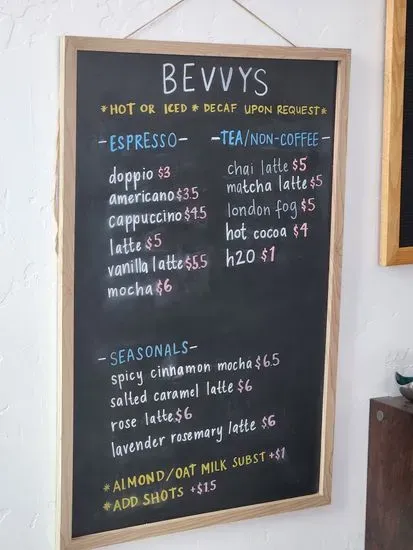 BEVVYS
*HOT OR ICED * DECAF UPON REQUEST*
-ESPRESSO-
doppio $3
americano $3.5
cappuccino $4.5
latte $5
vanilla latte $5.5
mocha $6
-TEA/NON-COFFEE-
chai latte $5
matcha latte $5
london fog $5
hot cocoa $4
h20 $1
-SEASONALS-
spicy cinnamon mocha $6.5
salted caramel latte $6
rose latte $6
lavender rosemary latte $6
*ALMOND/OAT MILK SUBST +$1
*ADD SHOTS +$1.5